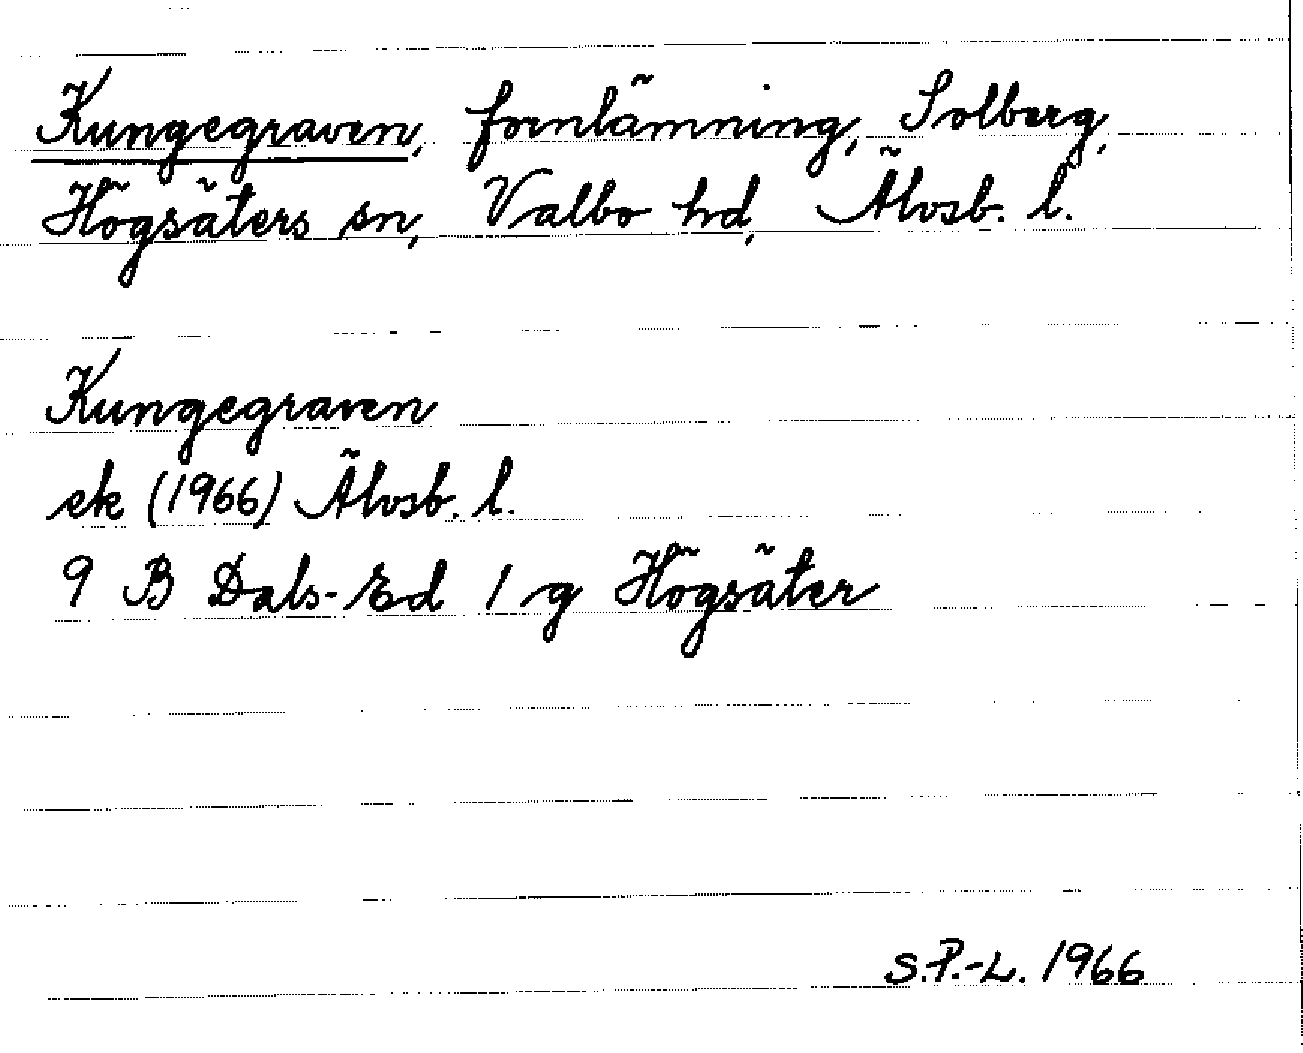 Kungegraven, fornlämning, Solberg,
Högsäters sn, Valbo hd, Älvsb. l.
Kungegraven
ek (1966) Älvsb. l.
9 B Dals-Ed 1 g Högsäter
S.P.-L. 1966